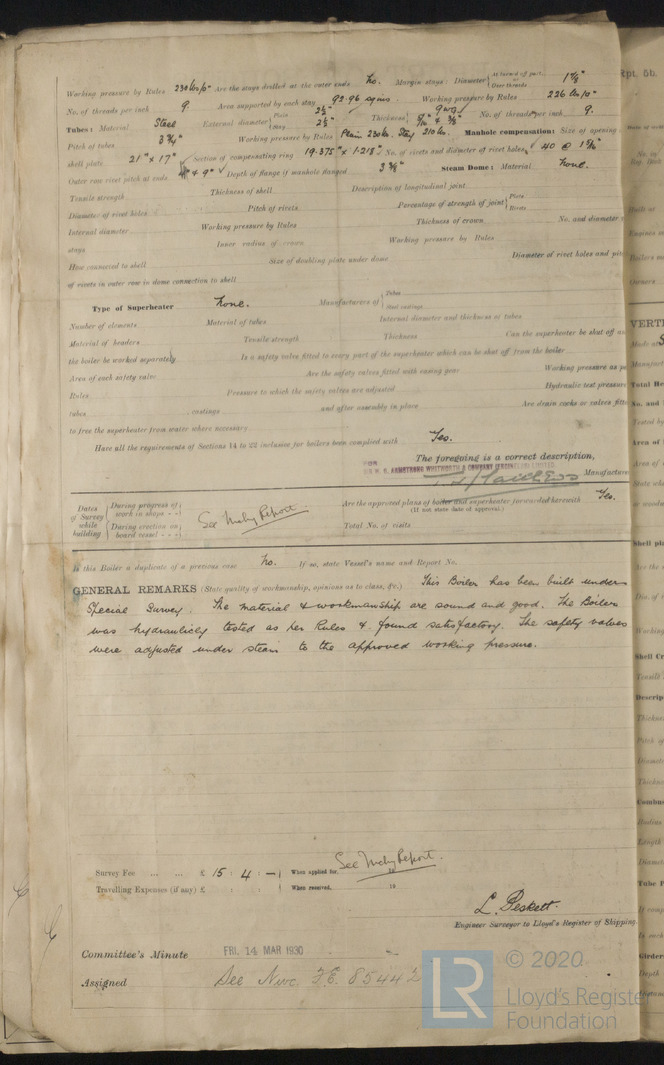 Working pressure by Rules 230 lbs/□" Are the stays drilled at the outer ends No. Margin stays: Diameter {At turned off part, or Over threads 1⅞"
No. of threads per inch 9. Area supported by each stay 92.96 sq ins. Working pressure by Rules 226 lbs/□"
Tubes: Material Steel External diameter {Plain 2½" Stay 2½" Thickness { 9 wg 5/16" & 3/8" No. of threads per inch 9.
Pitch of tubes 3¾" Working pressure by Rules Plain 230 lbs. Stay 210 lbs. Manhole compensation: Size of opening
shell plate 21" x 17" Section of compensating ring 19.375" x 1.218" No. of rivets and diameter of rivet holes 40 @
Outer row rivet pitch at ends & 9" Depth of flange if manhole flanged 3⅜" Steam Dome: Material None.
Tensile strength Thickness of shell Description of longitudinal joint
Diameter of rivet holes Pitch of rivets Percentage of strength of joint {Plate Rivets
Internal diameter Working pressure by Rules Thickness of crown No. and diameter
stays Inner radius of crown Working pressure by Rules
How connected to shell Size of doubling plate under dome Diameter of rivet holes and
of rivets in outer row in dome connection to shell
Type of Superheater None. Manufacturers of {Tubes Steel castings
Number of elements Material of tubes Internal diameter and thickness of tubes
Material of headers Tensile strength Thickness Can the superheater be shut off
the boiler be worked separately Is a safety valve fitted to every part of the superheater which can be shut off from the boiler
Area of each safety valve Are the safety valves fitted with easing gear Working pressure as
Rules Pressure to which the safety valves are adjusted Hydraulic test pressure
tubes castings and after assembly in place Are drain cocks or valves
to free the superheater from water where necessary
Have all the requirements of Sections 14 to 22 inclusive for boilers been complied with Yes.
The foregoing is a correct description,
ARMSTRONG WHITWORTH & COMPANY (ENGINEERS) LIMITED.
Manufacture
Dates of Survey while building {During progress of work in shops - - During erection on board vessel - - - See Mchy Report.
Are the approved plans of boiler and superheater forwarded herewith Yes.
(If not state date of approval.)
Total No. of visits
Is this Boiler a duplicate of a previous case No. If so, state Vessel's name and Report No.
GENERAL REMARKS (State quality of workmanship, opinions as to class, &c.) This Boiler has been built under
Special Survey. The material & workmanship are sound and good. The Boiler
was hydraulicly tested as per Rules & found satisfactory. The safety valves
were adjusted under steam to the approved working pressure.
Survey Fee ... ... £ 15 : 4 : - When applied for, See Mchy Report. 19
Travelling Expenses (if any) £ : : When received, 19
L. Beskett.
Engineer Surveyor to Lloyd's Register of Shipping.
Committee's Minute FRI. 14 MAR 1930
Assigned See Nwc. F.E. 85442
LR © 2020
Lloyd's Register
Foundation
Rpt. 5b.
VERTI